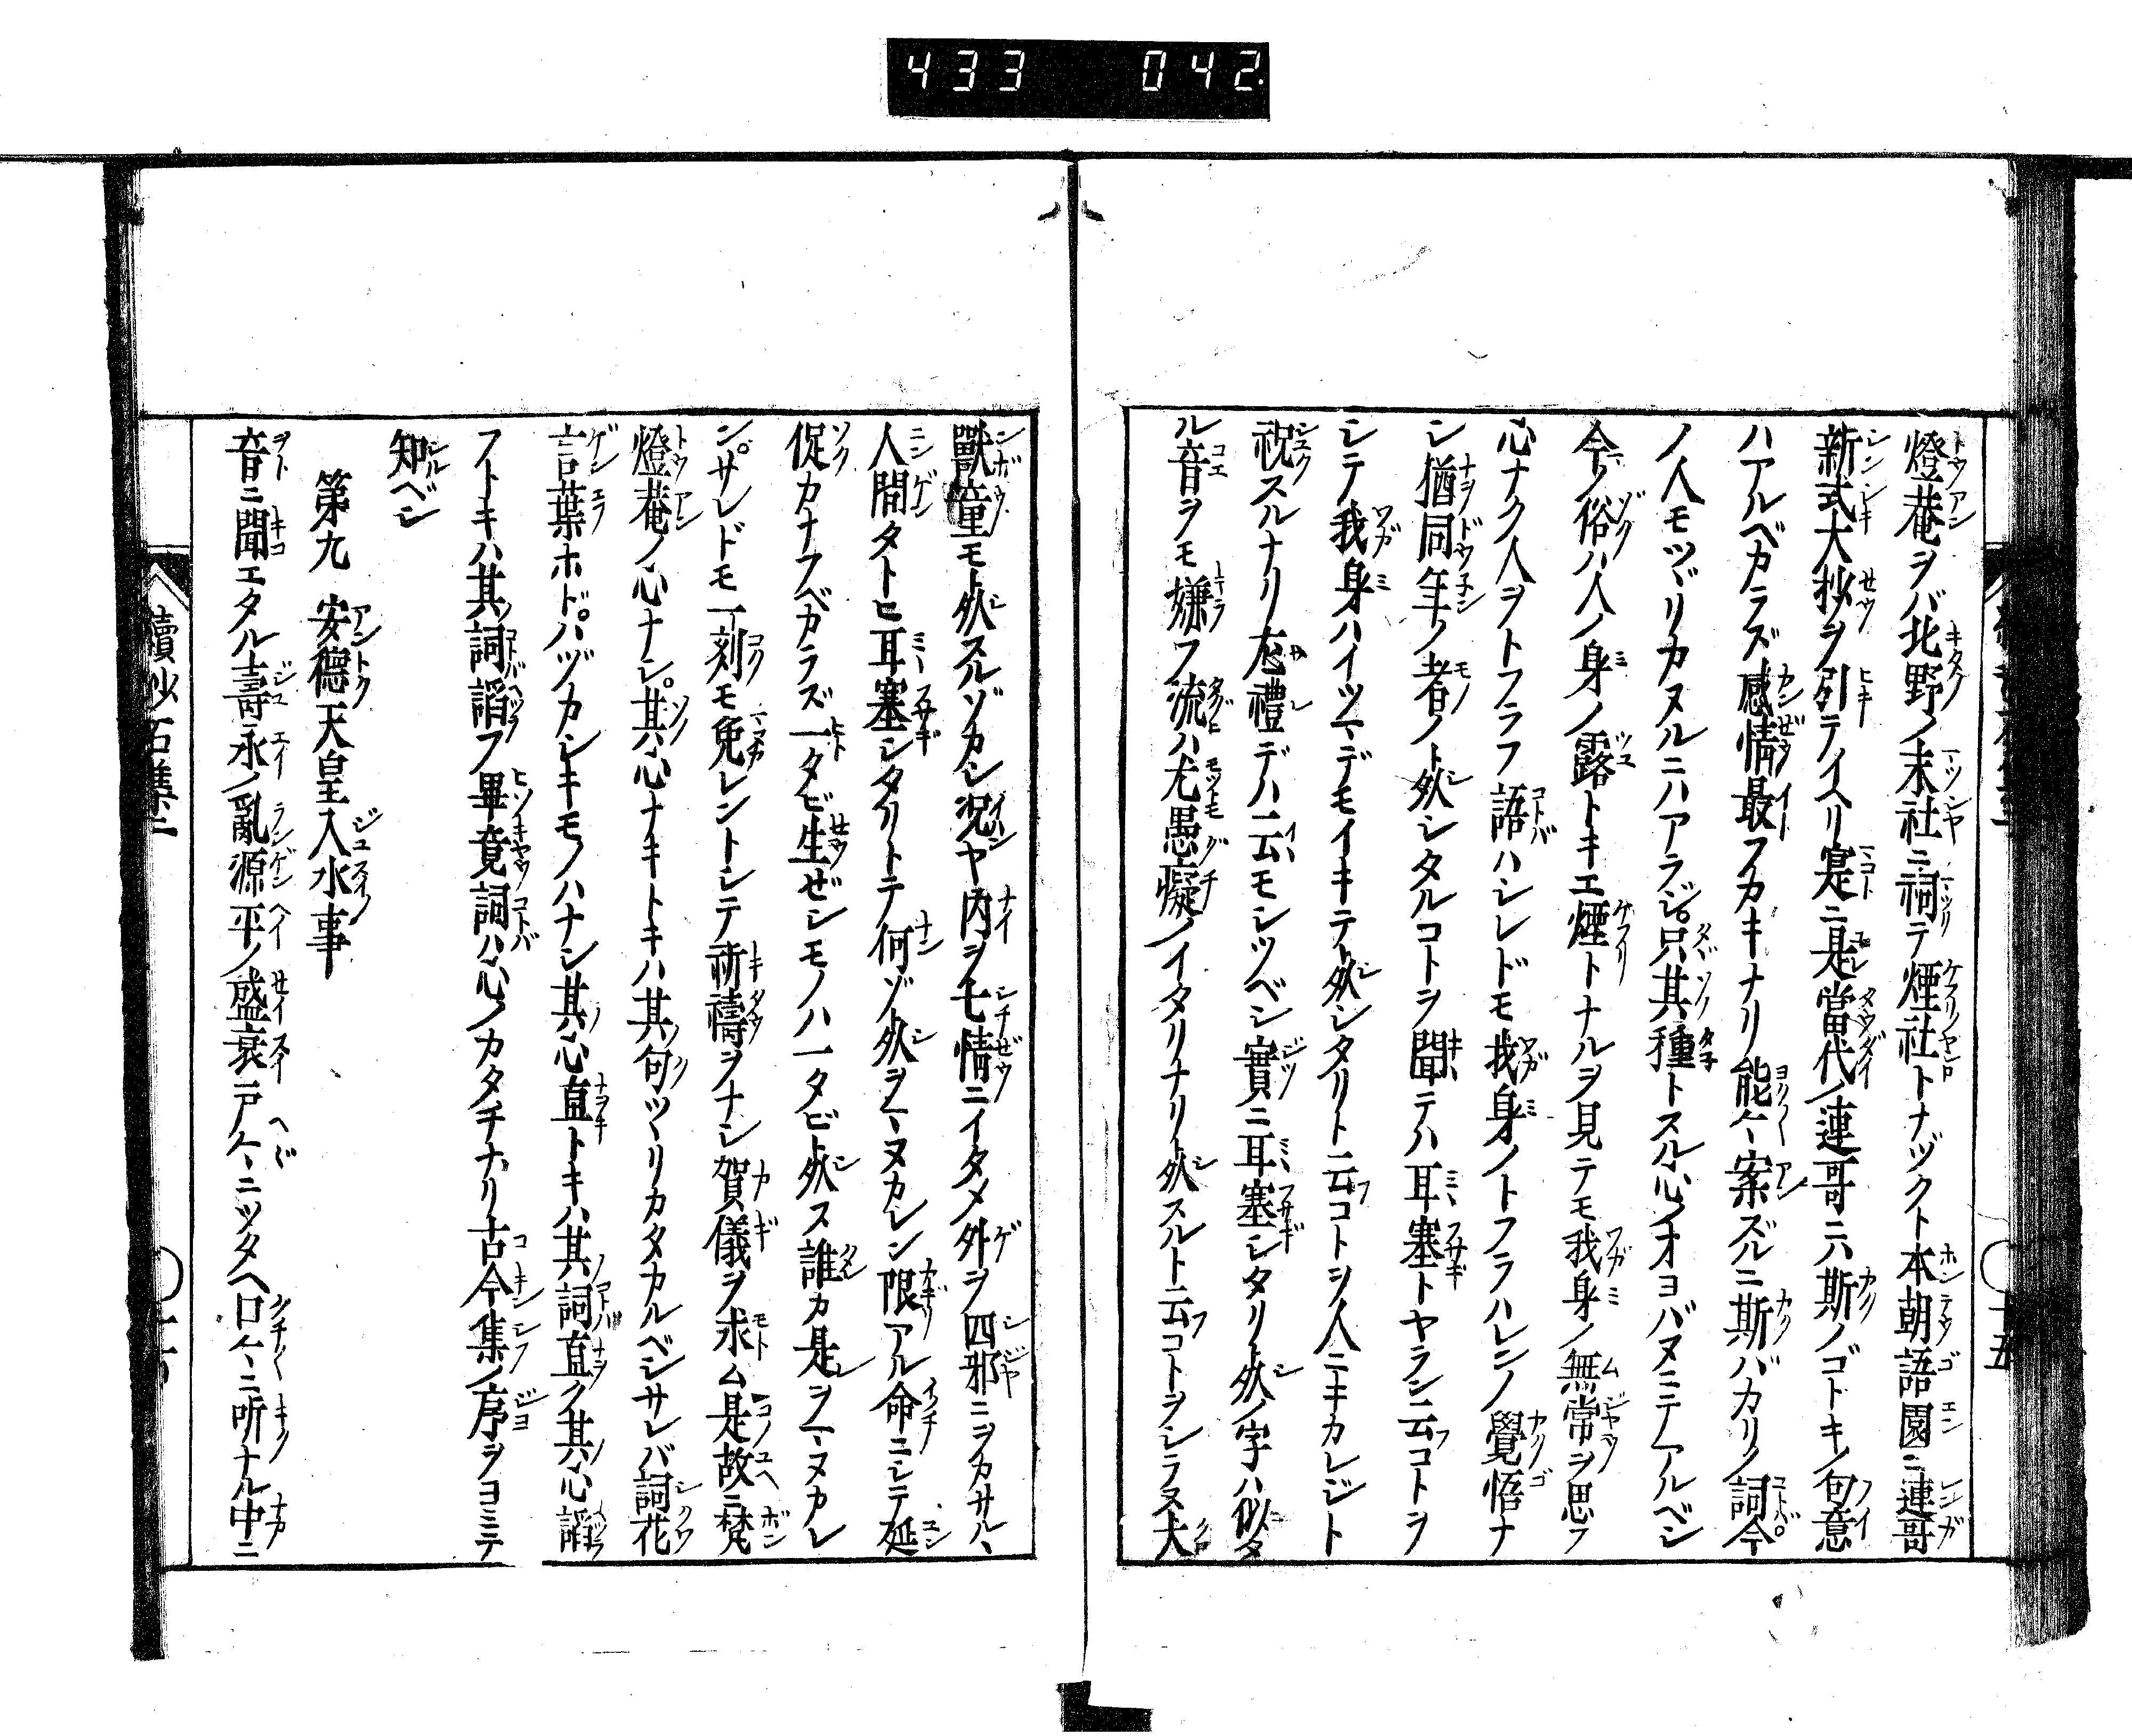 433 042
燈菴ヲバ北野ノ末社ニ祠テ煙社トナヅクト本朝語園ニ連哥
新式大抄ヲ引テイヘリ寔ニ是當代ノ連哥ニハ斯ノゴトキノ句意
ハアルベカラズ感情最フカキナリ能〱案ズルニ斯バカリノ詞今
ノ人モツヾリカヌルニハアラジ只其種トスル心ノオヨバヌミニテアルベシ
今ノ俗ハ人ノ身ノ露トキエ煙トナルヲ見テモ我身ノ無常ヲ思フ
心ナク人ヲトフラフ語ハシレドモ我身ノトフラハレンノ覺悟ナ
シ猶同年ノ者ノト死シタルコトヲ聞テハ耳塞トヤラン云コトヲ
シテ我身ハイツマデモイキテト死シタリト云コトヲ人ニキカレジト
祝スルナリ左禮デハ云モシツベシ實ニ耳塞シタリト死ノ字ハ似タ
ル音ヲモ嫌フ流ハ尤愚癡ノイタリナリト死スルト云コトヲシラヌ犬
獸童モト死スルゾカシ况ヤ内ヲ七情ニイタメ外ヲ四邪ニヲカサルヽ
人間タトヒ耳塞シタリトテ何ゾト死ヲマヌカレン限アル命ニシテ延
促カナフベカラズ一タビ生ゼシモノハ一タビト死ス誰カ是ヲマヌカレ
ン。サレドモ一刻モ免レントシテ祈禱ヲナシ賀儀ヲ求ム是故ニ梵
燈菴ノ心ナシ。其心ナキトキハ其句ツヽリカタカルベシサレバ詞花
言葉ホドハヅカシキモノハナシ其心直トキハ其詞直ク其心謟
フトキハ其詞謟フ畢竟詞ハ心ノカタチナリ古今集ノ序ヲヨミテ
知ベシ
第九 安德天皇入水事
音ニ聞エタル壽永ノ亂源平ノ盛衰戸〱ニツタヘ口〱ニ听ナル中ニ
續沙石集二